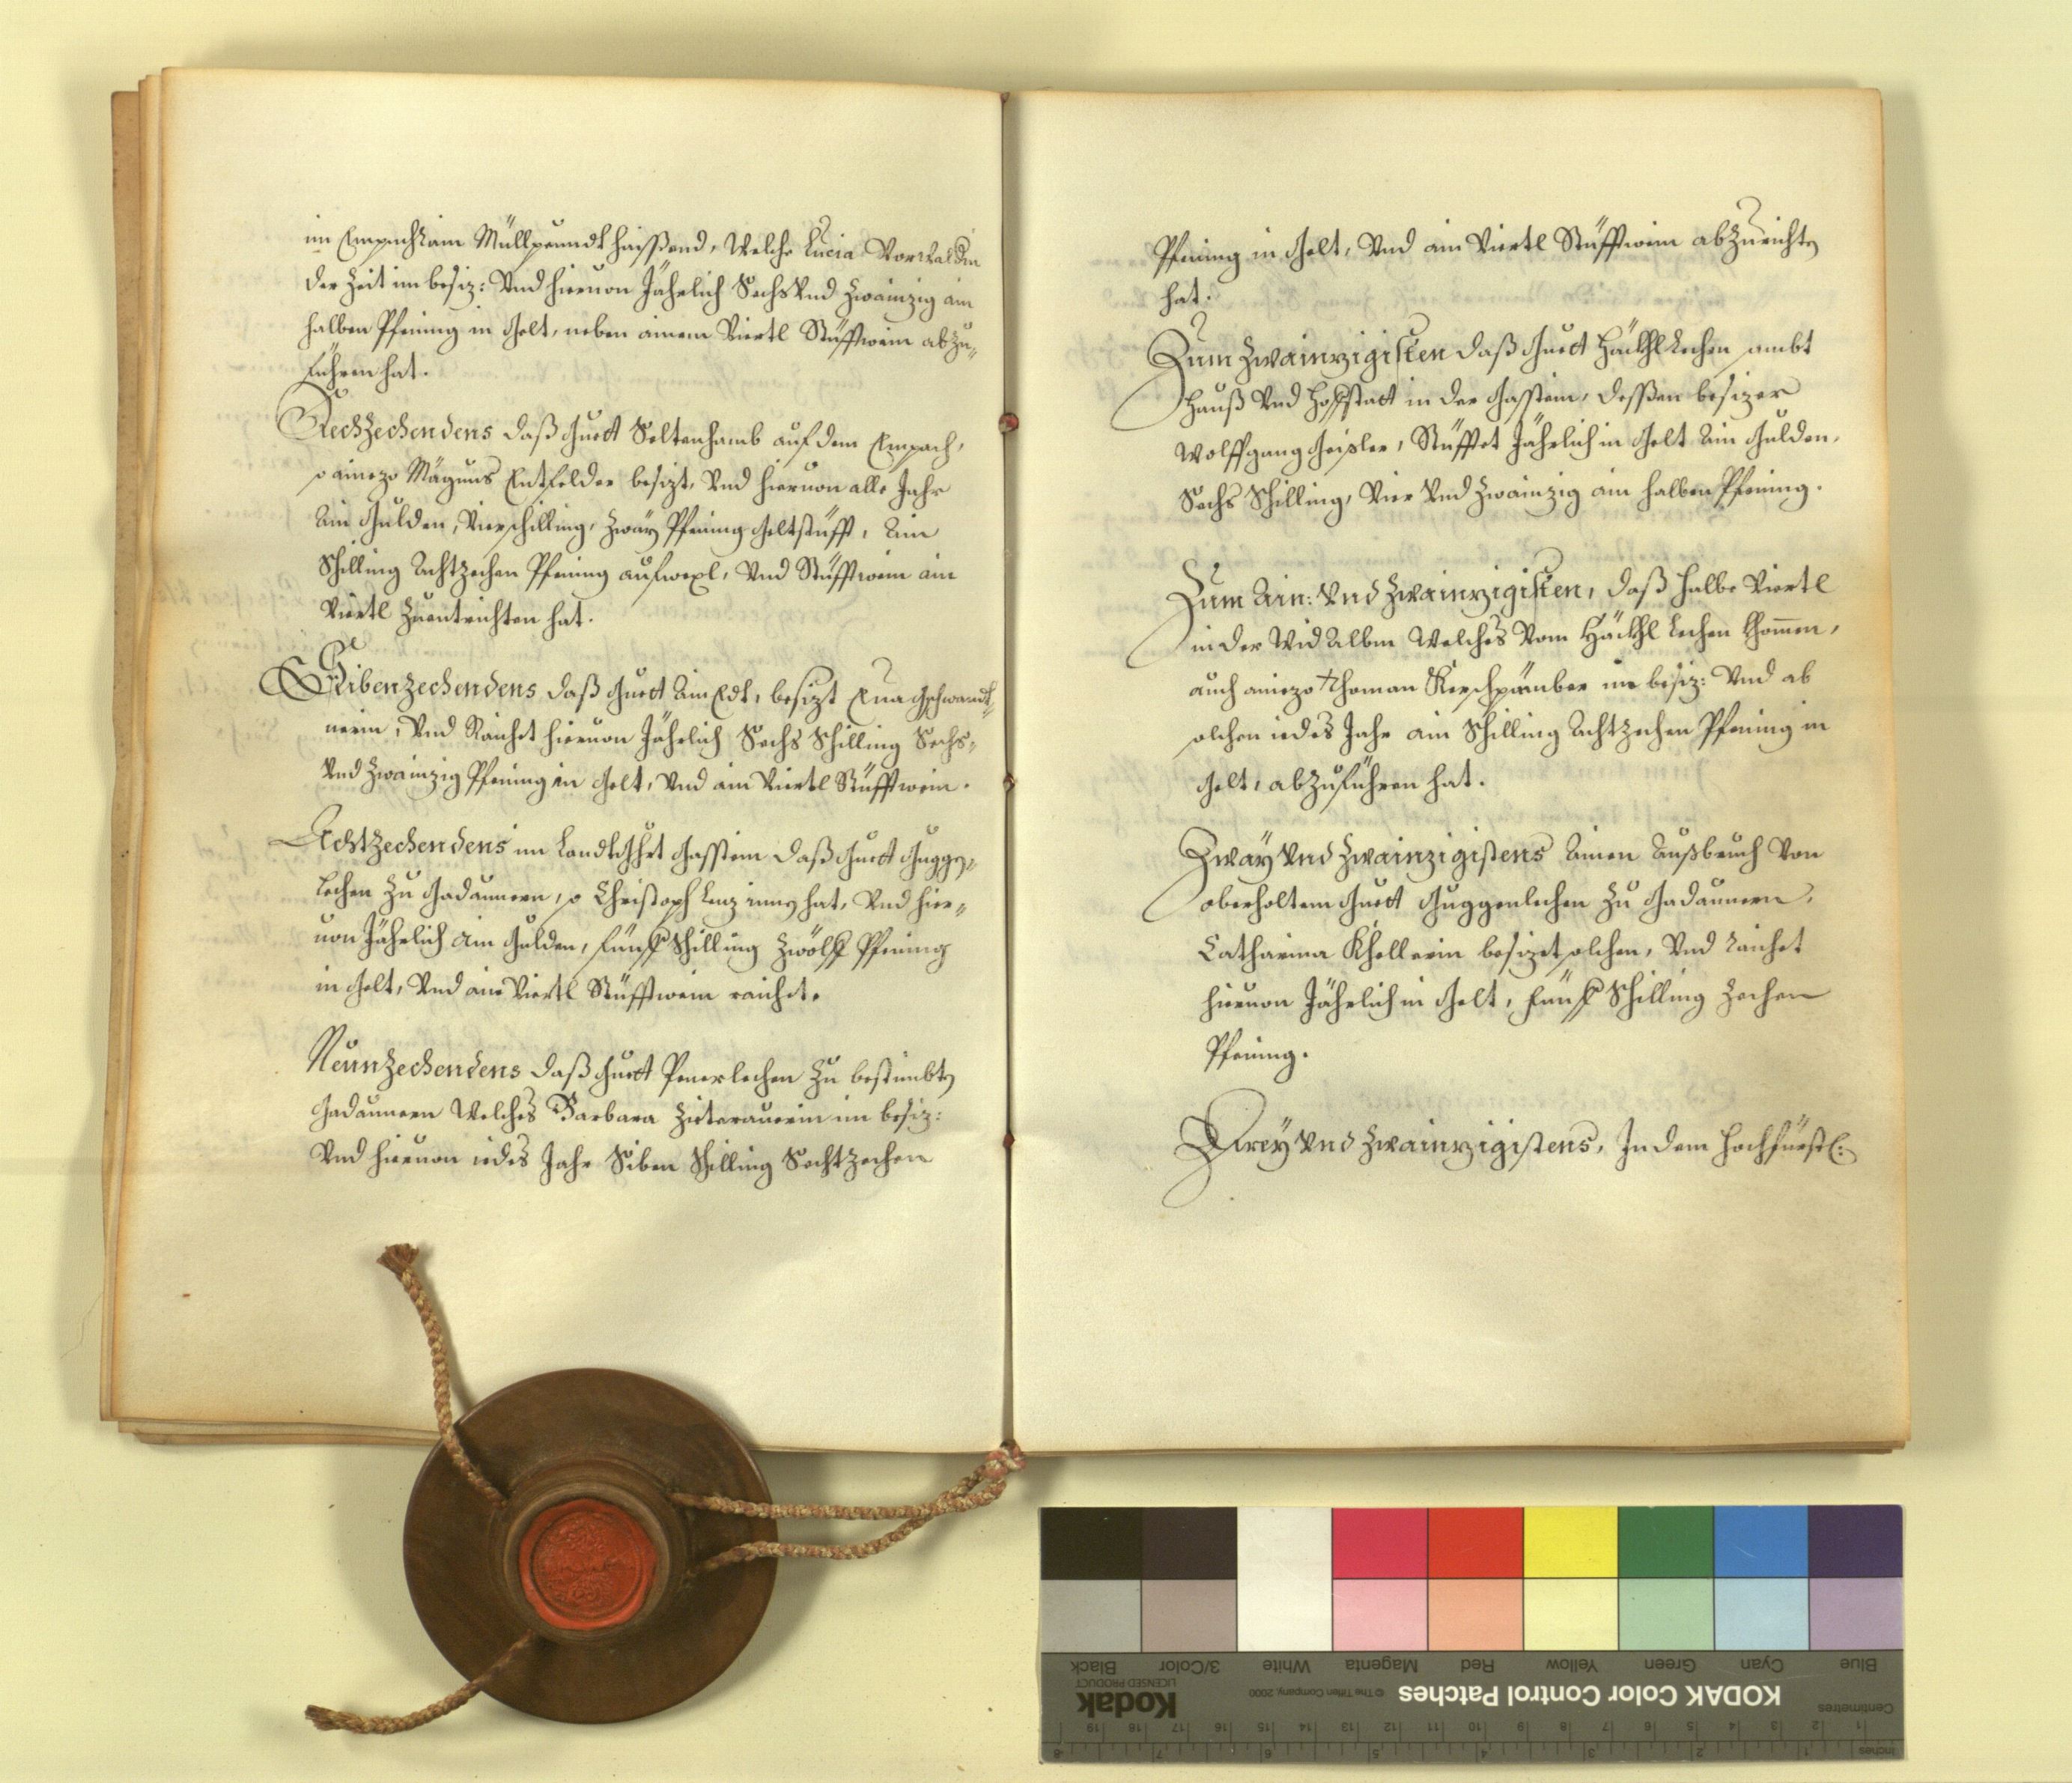 im Empach am Müllprundt haissend, Welche Lucia Vorwaldin
der Zeit im besiz: Vnd hieruon Jährlich Sechs Vnd Zwainzig ain
halben Pfening in Gelt, neben ainem Viertl Stüfftwein abzu„
führen hat.
Sechzechendens daß Guett Soltenhamb auf dem Empach,
so aniezo Mägnus Entfelder besizt, Vnd hieruon alle Jahr
Ain Gulden, Vier schilling, Zwäy Pfening Geltstüfft, Ain
Schilling Achtzechen Pfening aufwexl, Vnd Stüfftwein ain
Viertl Zuentrichten hat.
Sibenzechendens daß Guett Ainedt, besizt Eua Gschwandt„
nerin, Vnd Raichet hieruon Jährlich Sechs Schilling Sechs„
Vnd Zwainzig Pfening in Gelt, Vnd ain Viertl Stüfftwein.
Achtzechendens im Landtghrt Gasstein daß Guett Guggen„
lechen Zu Gadaunern, so Christoph Lenz innen hat, Vnd hier„
uon Jährlich Ain Gulden, fünff Schilling Zwölff Pfening
in Gelt, Vnd ain Viertl Stüfftwein raichet.
Neunzechendens daß Guett Penerlechen Zu bestimbten
Gadaunern Welches Barbara Zitterauerin im besiz:
Vnd hieruon iedes Jahr Siben Schilling Sechtzechen
Pfening in Gelt, Vnd ain Viertl Stüfftwein abzurichten
hat.
Zum Zwainzigisten daß Guett Häckhl Lechen sambt
Hauß Vnd Hoffstatt in der Gasstein, dessen besizer
Wolffgang Geisler, Stüfftet Jährlich in Gelt Ain Gulden,
Sechs Schilling, Vier Vnd Zwainzig ain halben Pfening.
Zum Ain: Vnd Zwainzigisten, daß halbe Viertl
in der Wid Alben Welches Vom Häckhl Lechen khommen,
auch aniezo Thoman Kerschpämber im besiz: Vnd ab
solchen iedes Jahr ain Schilling Achtzechen Pfening in
Gelt, abzuführen hat.
Zwäy Vnd Zwainzigistens Ainen Außbruch Von
oberholtem Guett Guggenlechen Zu Gadaunern,
Catharina Khellerin besizet solchen, Vnd raichet
hieruon Jährlich in Gelt, fünff Schilling Zechen
Pfening.
Drey Vnd Zwainzigistens, In dem Hochfürstl:
Blue Cyan Green Yellow Red Magenta White 3/Color Black
KODAK Color Control Patches © The Tiffen Company, 2000 Kodak
LICENSED PRODUCT
Centimetres 1 2 3 4 5 6 7 8 9 10 11 12 13 14 15 16 17 18 19
Inches 1 2 3 4 5 6 7 8